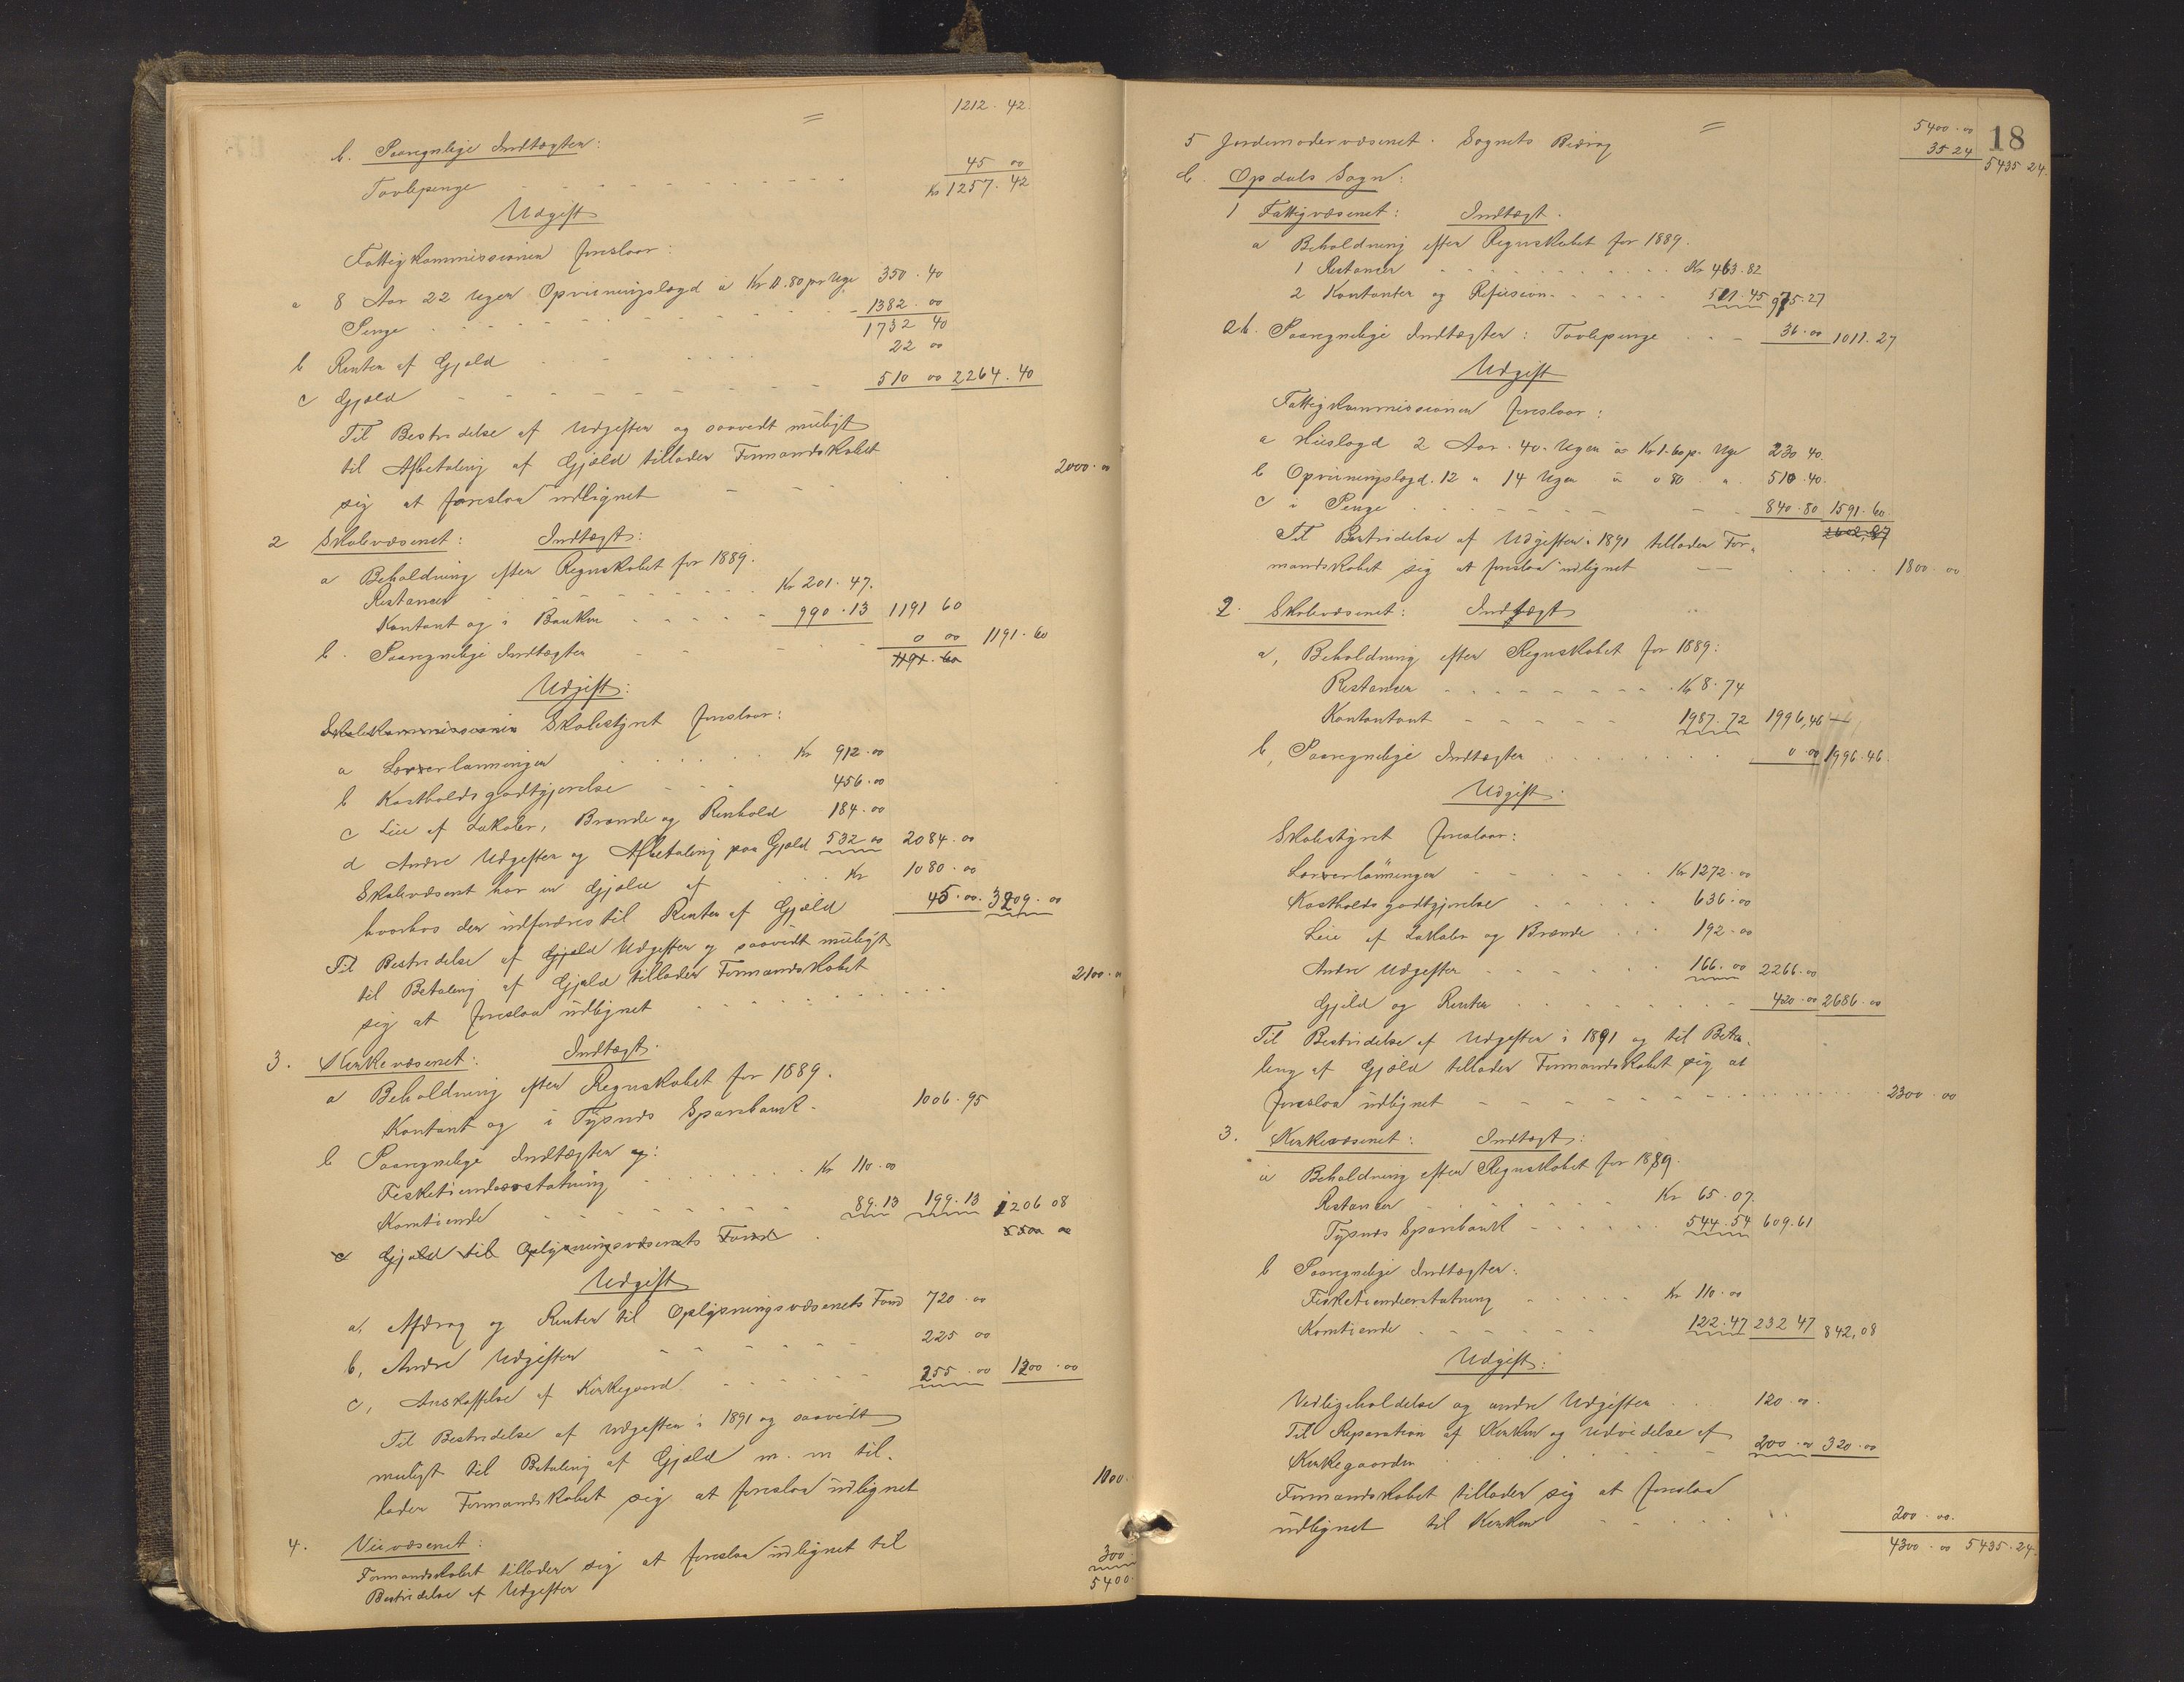 =
1212. 42.
b. Paaregnelige Indtægter:
Tavlepenge - - - - - - - - - 45 00
Kr 1257. 42
Udgift
Fattigkommissionen foreslaar:
a 8 Aar 22 Uger Opvixningslægd a Kr 0.80 pr Uge 350. 40
Penge - - - - - - - - - 1382. 00
1732 40
b Renter af Gjæld - - - - 22 00
c Gjæld - - - - - - - 510 00 2264. 40
Til Bestridelse af Udgifter og saavidt muligt
til Afbetaling af Gjæld tillader Formandskabet
sig at foreslaa udlignet - - - 2000. 00
2 Skolevæsenet: Indtægt:
a Beholdning efter Regnskabet for 1889.
Restancer - - - - - - - Kr 201. 47.
Kontant og i Banken - - - - 990. 13 1191 60
b. Paaregnelige Indtægter - - - - 0 00 1191. 60
1191. 60
Udgift:
Skolekommissionen Skolestyret foreslaar:
a Lærerlønninger . . . . Kr 912. 00
b Kostholdsgodtgjørelse - - - 456. 00
c Leie af Lokaler, Brænde og Renhold 184. 00
d Andre Udgifter og Afbetaling paa Gjæld 532 00 2084. 00
Skolevæsenet har en Gjæld af . . Kr 1080. 00
hvorhos der udfordres til Renter af Gjæld 45. 00. 3209. 00
Til Bestridelse af Gjæld Udgifter og saavidt muligt
til Betaling af Gjæld tillader Formandskabet
sig at foreslaa udlignet - - - - - - 2100. 0
3. Kirkevæsenet: Indtægt.
a Beholdning efter Regnskabet for 1889.
Kontant og i Tysnes Sparebank - 1006. 95
b Paaregnelige Indtægter og:
Fisketiendeerstatning - - - - - Kr 110. 00
Korntiende - - - - - - - 89. 13 199. 13 1206 08
c Gjæld til Oplysningsvæsenets Fond . 5500 00
Udgift
a, Afdrag og Renter til Oplysningsvæsenets Fond 720. 00
b, Andre Udgifter - - - - - - 225 00
c, Anskaffelse af Kirkegaard - - - - - 255. 00 1200. 00
Til Bestridelse af Udgifter i 1891 og saavidt
muligt til Betaling af Gjæld m. m til-
lader Formandskabet sig at foreslaa udlignet 1000.
4. Veivæsenet:
Formandskabet tillader sig at foreslaa udlignet til
Bestridelse af Udgifter 300.
5400.
=
18
5400. 00
5 Jordemodervæsenet. Sognets Bidrag 35 24 5435 24.
C. Opdals Sogn:
1 Fattigvæsenet: Indtægt.
a Beholdning efter Regnskabet for 1889.
1 Restancer - - - - - - - Kr 463. 82
2 Kontanter og Refusion - - - - - 511. 45 975. 27
ab. Paaregnelige Indtægter: Tavlepenge - - - 36. 00 1011. 27
Udgift
Fattigkommissionen foreslaar:
a Huslægd 2 Aar. 40. Uger a Kr 1.60 p. Uge 230 40.
b Opvixningslægd. 12 " 14 Uger a 0 80 . " 510. 40.
c i Penge - - - - - - - - 840. 80 1591. 60.
2602,87
Til Bestridelse af Udgifter i 1891 tillader For-
mandskabet sig at foreslaa udlignet - - 1800. 00
2. Skolevæsenet: Indtægt
a, Beholdning efter Regnskabet for 1889:
Restancer - - - - - - - Kr 8. 74
Kontantant - - - - - 1987. 72 1996,46
b, Paaregnelige Indtægter . . . . . 0. 00 1996. 46.
Udgift.
Skolestyret foreslaar:
Lærerlønninger - - - - - Kr 1272. 00
Kostholdsgodtgjørelse - - - - - 636. 00
Leie af Lokaler og Brænde . . . 192. 00
Andre Udgifter - - - - - 166. 00 2266. 00
Gjæld og Renter . . . . . . 420. 00 2686. 00
Til Bestridelse af Udgifter i 1891 og til Beta-
ling af Gjæld tillader Formandskabet sig at
foreslaa udlignet - - - - - - - 2300. 00
3. Kirkevæsenet: Indtægt:
a Beholdning efter Regnskabet for 1889.
Restancer - - - - - Kr 65. 07.
Tysnes Sparebank - - - - - 544. 54 609. 61
b Paaregnelige Indtægter:
Fisketiendeerstatning - - - - - Kr 110. 00
Korntiende - - - - - 122. 47 232 47 842,08
Udgift:
Vedligeholdelse og andre Udgifter . . . 120. 00.
Til Reparation af Kirken og Udvidelse af
Kirkegaarden . . . . . - 200. 00 320. 00
Formandskabet tillader sig at foreslaa
udlignet til Kirken - - - - - 200. 00.
4300. 00 5435. 24.